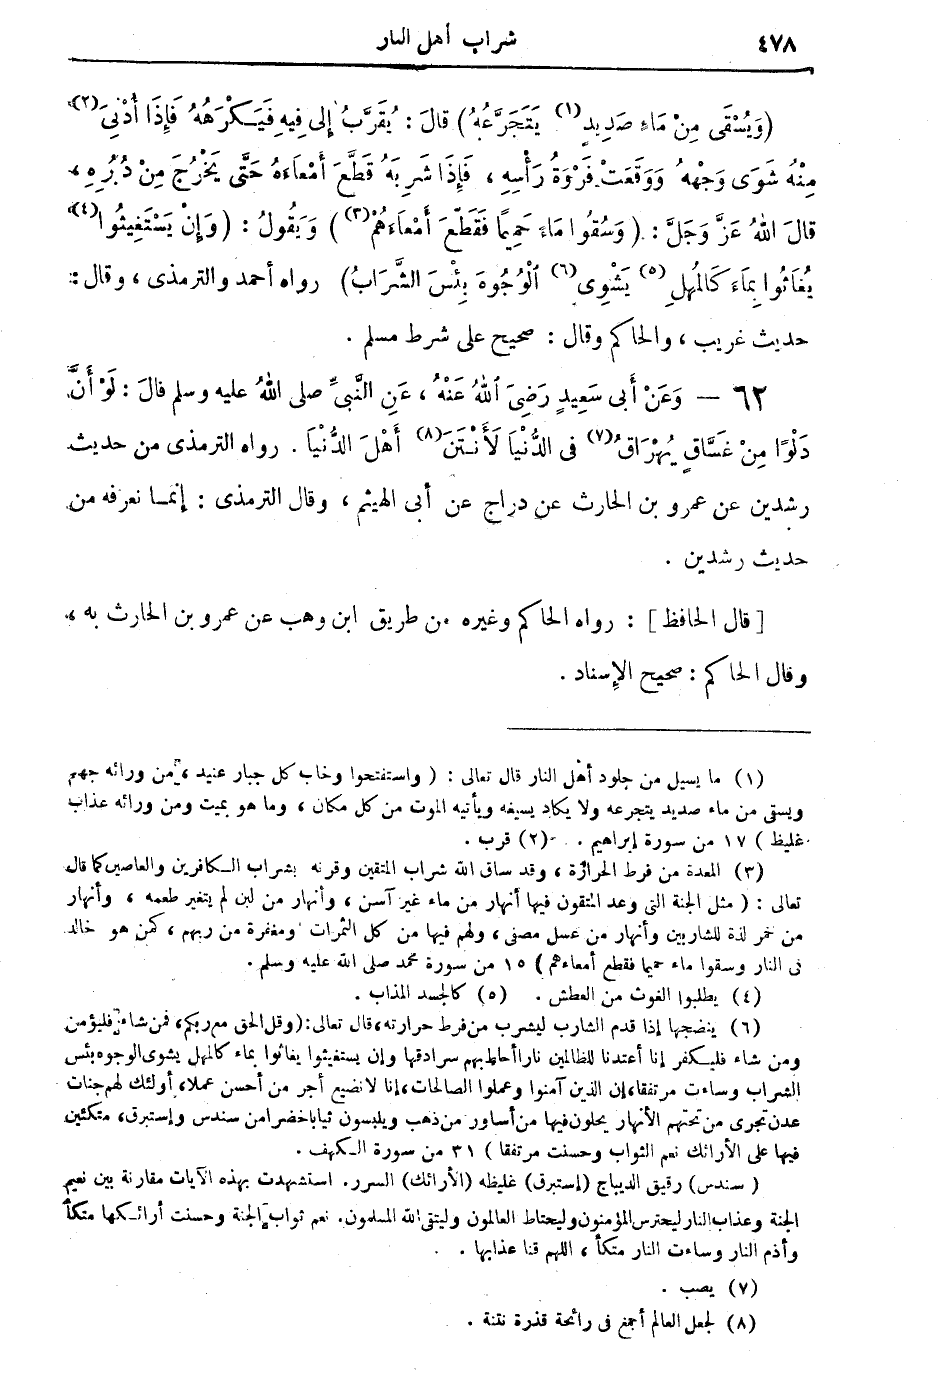 ٤٧٨ شراب أهل النار
(وَيُسْقَى مِنْ مَاءٍ صَدِيدٍ(١) يَتَجَرَّعُهُ) قالَ : يُقَرَّبُ إلى فِيهِ فَيَكْرَهُهُ فَإِذَا أُدْنِيَ(٢)
مِنْهُ شَوَى وَجْهَهُ وَوَقَعَتْ فَرْوَةُ رَأْسِهِ ، فَإِذَا شَرِبَهُ قَطَّعَ أَمْعَاءَهُ حَتَّى يَخْرُجَ مِنْ دُبُرِهِ ،
قالَ اللهُ عَزَّ وَجَلَّ : (وَسُقُوا مَاءً حَمِيمًا فَقَطَّعَ أَمْعَاءَهُمْ(٣)) وَيَقُولُ : (وَإِنْ يَسْتَغِيثُوا(٤)
يُغَاثُوا بِمَاءٍ كَالْمُهْلِ(٥) يَشْوِي(٦) الْوُجُوهَ بِئْسَ الشَّرَابُ) رواه أحمد والترمذى ، وقال :
حديث غريب ، والحاكم وقال : صحيح على شرط مسلم .
٦٢ — وَعَنْ أَبى سَعِيدٍ رَضِيَ اللهُ عَنْهُ ، عَنِ النَّبىِّ صلى اللهُ عليه وسلم قالَ : لَوْ أَنَّ
دَلْوًا مِنْ غَسَّاقٍ يُهْرَاقُ(٧) فى الدُّنْيَا لَأَنْتَنَ(٨) أَهْلَ الدُّنْيَا . رواه الترمذى من حديث
رشدين عن عمرو بن الحارث عن دراج عن أبى الهيثم ، وقال الترمذى : إنما نعرفه من
حديث رشدين .
[قال الحافظ] : رواه الحاكم وغيره من طريق ابن وهب عن عمرو بن الحارث به ،
وقال الحاكم : صحيح الإسناد .
(١) ما يسيل من جلود أهل النار قال تعالى : ( واستفتحوا وخاب كل جبار عنيد ، من ورائه جهنم
ويسقى من ماء صديد يتجرعه ولا يكاد يسيغه ويأتيه الموت من كل مكان ، وما هو بميت ومن ورائه عذاب
غليظ ) ١٧ من سورة إبراهيم . (٢) قرب .
(٣) المعدة من فرط الحرارة ، وقد ساق الله شراب المتقين وقرنه بشراب الكافرين والعاصين كما قال
تعالى : ( مثل الجنة التى وعد المتقون فيها أنهار من ماء غير آسن ، وأنهار من لبن لم يتغير طعمه ، وأنهار
من خمر لذة للشاربين وأنهار من عسل مصفى ، ولهم فيها من كل الثمرات ومغفرة من ربهم ، كمن هو خالد
فى النار وسقوا ماء حميما فقطع أمعاءهم ) ١٥ من سورة محمد صلى الله عليه وسلم .
(٤) يطلبوا الغوث من العطش . (٥) كالجسد المذاب .
(٦) ينضجها إذا قدم الشارب ليشرب من فرط حرارته ، قال تعالى : (وقل الحق من ربكم ، فمن شاء فليؤمن
ومن شاء فليكفر إنا أعتدنا للظالمين نارا أحاط بهم سرادقها وإن يستغيثوا يغاثوا بماء كالمهل يشوى الوجوه بئس
الشراب وساءت مرتفقا ، إن الذين آمنوا وعملوا الصالحات ، إنا لا نضيع أجر من أحسن عملا ، أولئك لهم جنات
عدن تجرى من تحتهم الأنهار يحلون فيها من أساور من ذهب ويلبسون ثيابا خضرا من سندس وإستبرق ، متكئين
فيها على الأرائك نعم الثواب وحسنت مرتفقا ) ٣١ من سورة الكهف .
( سندس) رقيق الديباج (إستبرق) غليظه (الأرائك) السرر . استشهدت بهذه الآيات مقارنة بين نعيم
الجنة وعذاب النار ليحترس المؤمنون وليحتاط العالمون وليتقى الله المسلمون . نعم ثواب الجنة وحسنت أرائكها متكأ
وأذم النار وساءت النار متكأ ، اللهم قنا عذابها .
(٧) يصب .
(٨) لجعل العالم أجمع فى رائحة قذرة نتنة .